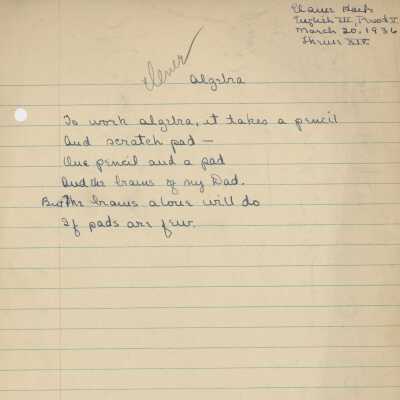 March 20, 1936
Clever
Algebra
To work algebra, it takes a pencil
And scratch pad —
One pencil and a pad
And the brains of my Dad.
But the brains alone will do
If pads are few.